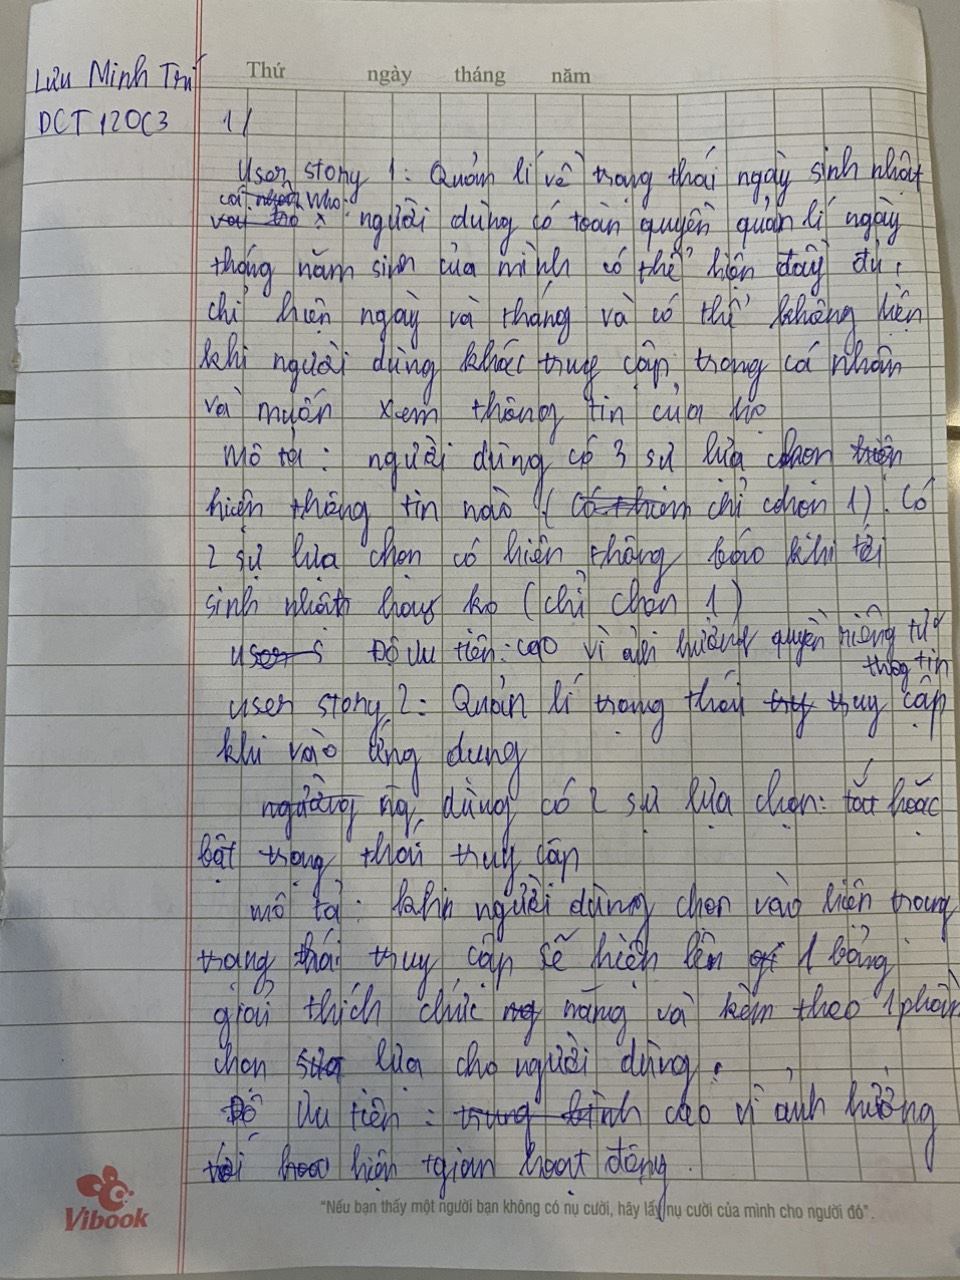 Lưu Minh Trí
DCT120C3
Thứ ngày tháng năm
1/
User story 1: Quản lí về trạng thái ngày sinh nhật
Who: người dùng có toàn quyền quản lí ngày
tháng năm sinh của mình có thể hiện đầy đủ,
chỉ hiện ngày và tháng và có thể không hiện
khi người dùng khác truy cập trang cá nhân
và muốn xem thông tin của họ
Mô tả: người dùng có 3 sự lựa chọn
hiện thông tin nào (chỉ chọn 1). Có
2 sự lựa chọn có hiện thông báo khi tới
sinh nhật hay ko (chỉ chọn 1)
Độ ưu tiên: cao vì ảnh hưởng quyền riêng tư
thông tin
user story 2: Quản lí trạng thái truy cập
khi vào ứng dụng
ng dùng có 2 sự lựa chọn: tắt hoặc
bật trạng thái truy cập
mô tả: khi người dùng chọn vào hiện trong
trạng thái truy cập sẽ hiện lên 1 bảng
giải thích chức năng và kèm theo 1 phần
chọn lựa cho người dùng.
Độ ưu tiên: cao vì ảnh hưởng
hiện tgian hoạt động.
Vibook
"Nếu bạn thấy một người bạn không có nụ cười, hãy lấy nụ cười của mình cho người đó".